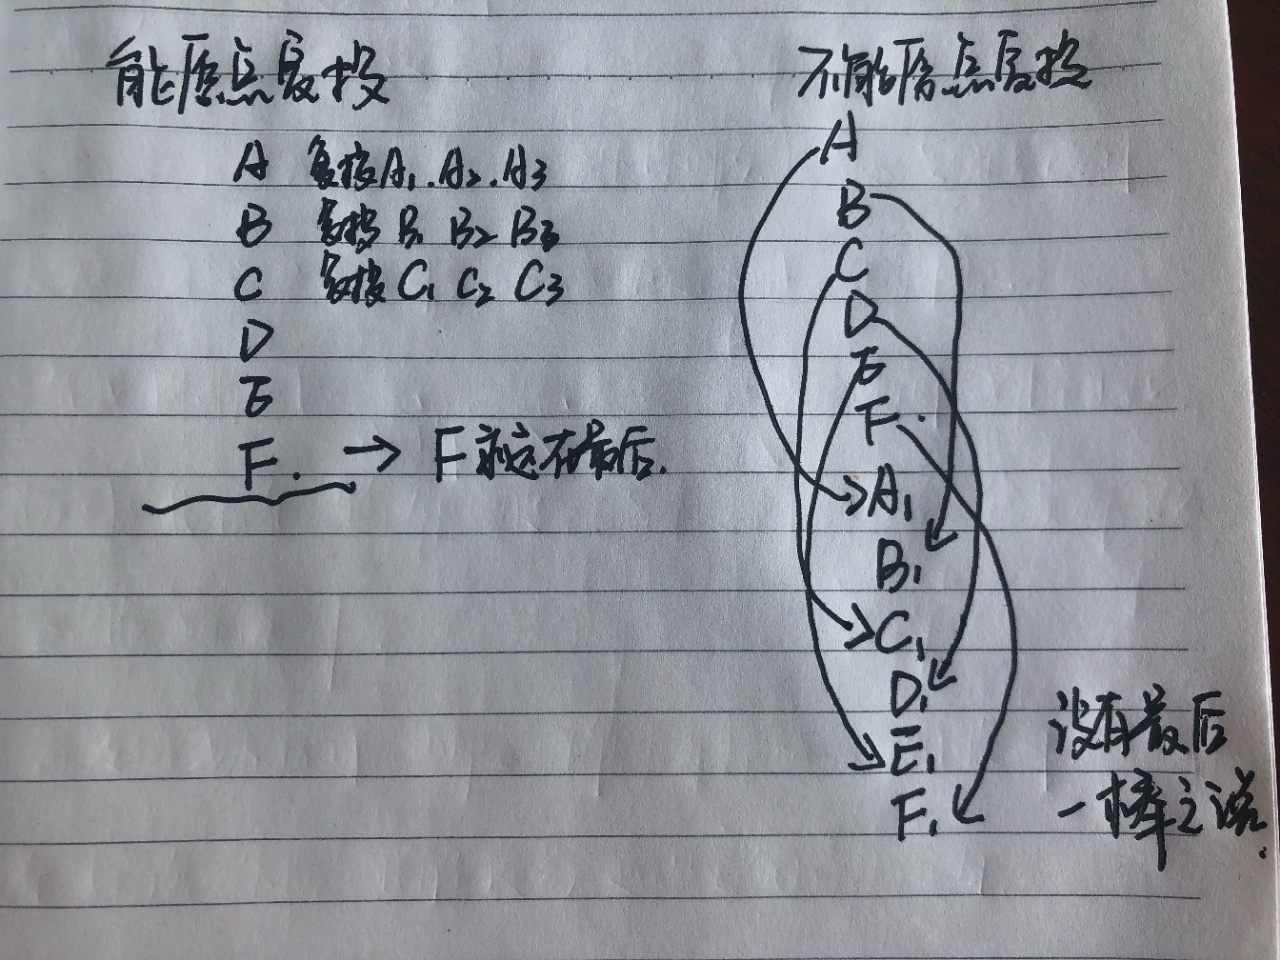 能原点复投
A 复投A1.A2.A3
B 复投 B1 B2 B3
C 复投 C1 C2 C3
D
E
F. → F永远在最后.
不能原点复投
A
B
C
D
E
F.
A1
B1
C1
D1
E1
F1
没有最后
一棒之说.